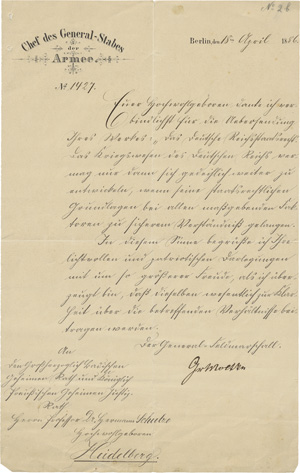 No 26
Chef des General-Stabes
der
Armee.
Berlin, den 15ten April 1886
No 1427.
Euer Hochwohlgeboren danke ich ver-
bindlichst für die Uebersendung
Ihres Werkes: „Das Deutsche Reichsstaatsrecht".
Das Kriegswesen des Deutschen Reichs ver-
mag nur dann sich gedeihlich weiter zu
entwickeln, wenn seine staatsrechtlichen
Grundlagen bei allen maßgebenden Fak-
toren zu sicherem Verständniß gelangen.
In diesem Sinne begrüße ich Ihre
lichtvollen und patriotischen Darlegungen
mit um so größerer Freude, als ich über-
zeugt bin, daß dieselben wesentlich zur Klar-
heit über die betreffenden Verhältnisse bei-
tragen werden.
Der General-Feldmarschall.
Gr Moltke
An
den Großherzoglich Badischen
Geheimen Rath und Königlich
Preußischen Geheimen Justiz-
Rath
Herrn Professor Dr Hermann Schulze
Hochwohlgeboren
Heidelberg.